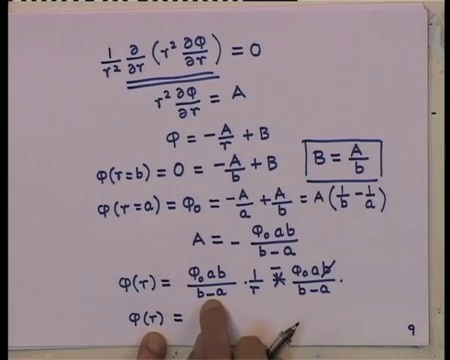 1/r² ∂/∂r (r² ∂φ/∂r) = 0
r² ∂φ/∂r = A
φ = -A/r + B
φ(r=b) = 0 = -A/b + B
B = A/b
φ(r=a) = φ₀ = -A/a + A/b = A(1/b - 1/a)
A = - φ₀ab/(b-a)
φ(r) = φ₀ab/(b-a) · 1/r - φ₀a/(b-a) .
φ(r) =
9